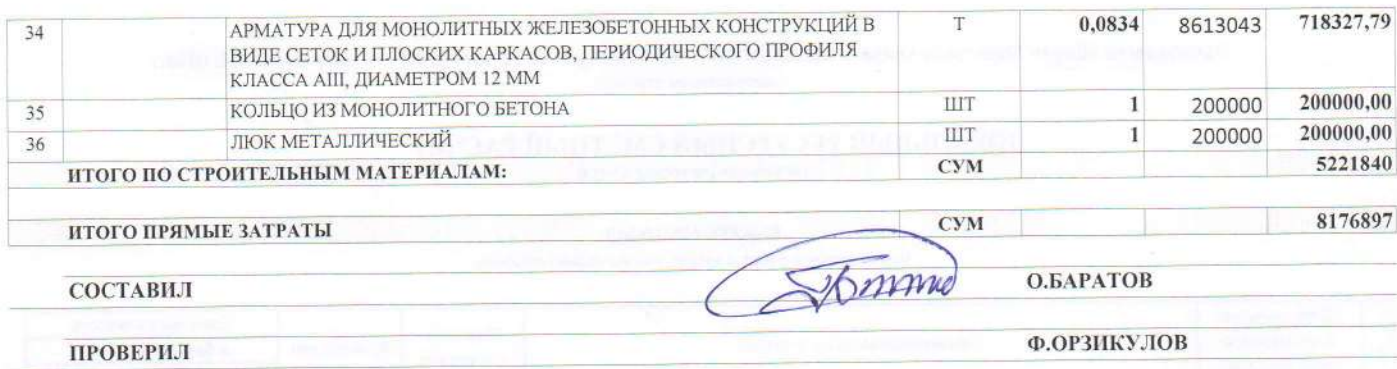 34 АРМАТУРА ДЛЯ МОНОЛИТНЫХ ЖЕЛЕЗОБЕТОННЫХ КОНСТРУКЦИЙ В Т 0,0834 8613043 718327,79
ВИДЕ СЕТОК И ПЛОСКИХ КАРКАСОВ, ПЕРИОДИЧЕСКОГО ПРОФИЛЯ
КЛАССА АIII, ДИАМЕТРОМ 12 ММ
35 КОЛЬЦО ИЗ МОНОЛИТНОГО БЕТОНА ШТ 1 200000 200000,00
36 ЛЮК МЕТАЛЛИЧЕСКИЙ ШТ 1 200000 200000,00
ИТОГО ПО СТРОИТЕЛЬНЫМ МАТЕРИАЛАМ: СУМ 5221840
ИТОГО ПРЯМЫЕ ЗАТРАТЫ СУМ 8176897
СОСТАВИЛ О.БАРАТОВ
ПРОВЕРИЛ Ф.ОРЗИКУЛОВ